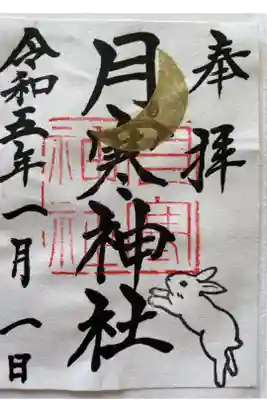 奉拝
月寒神社
令和五年一月一日